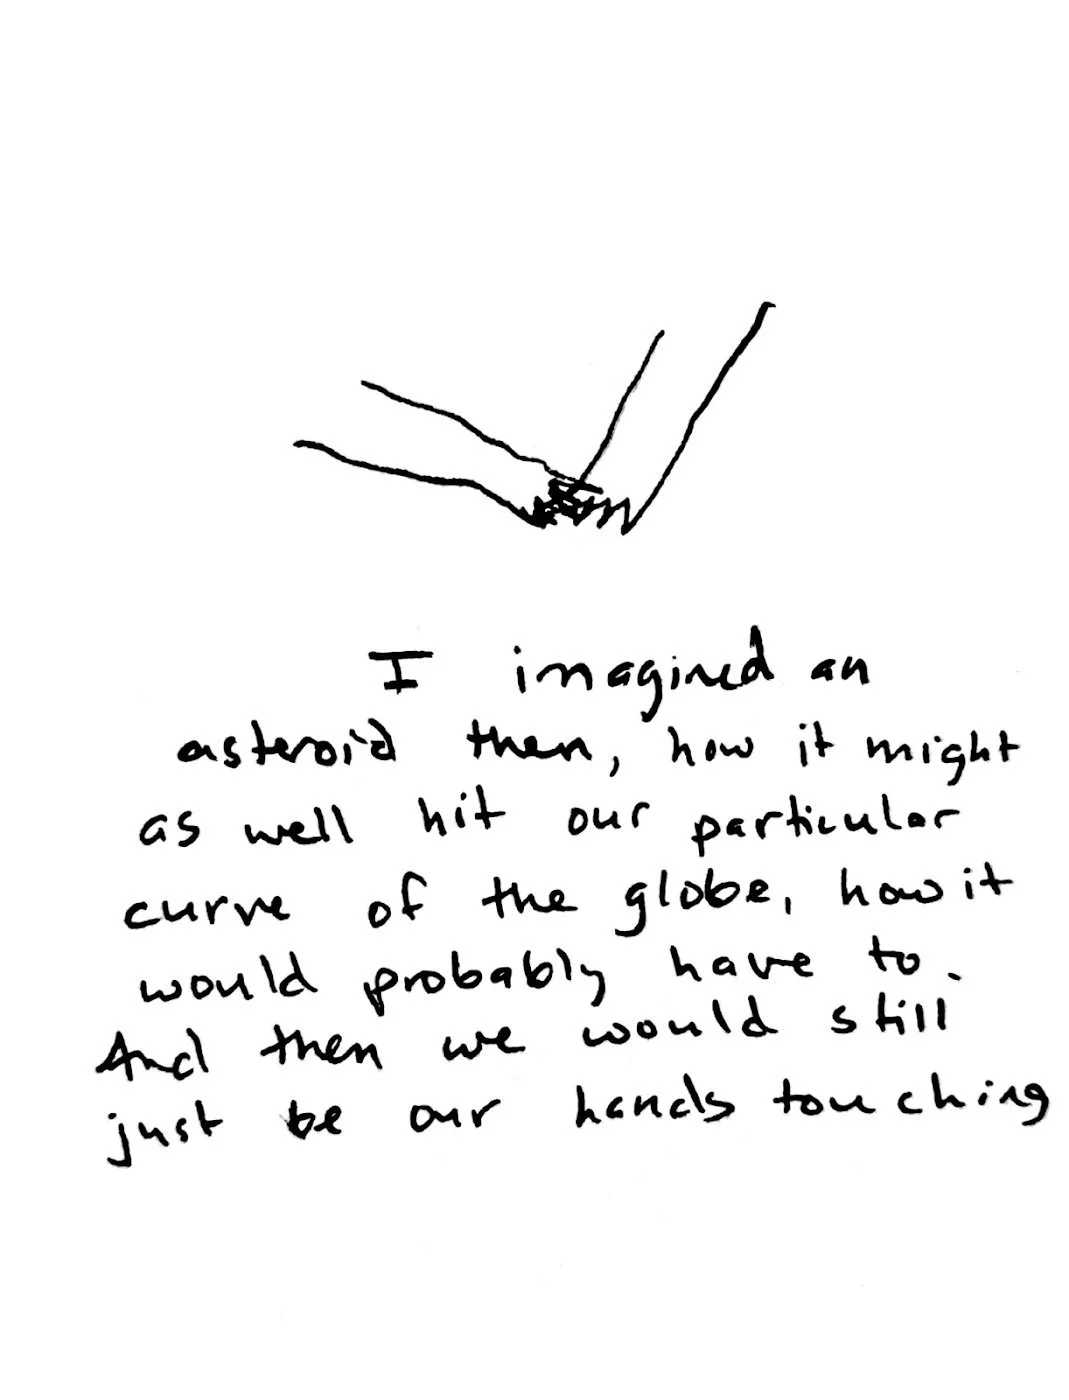 I imagined an
asteroid then, how it might
as well hit our particular
curve of the globe, how it
would probably have to.
And then we would still
just be our hands touching